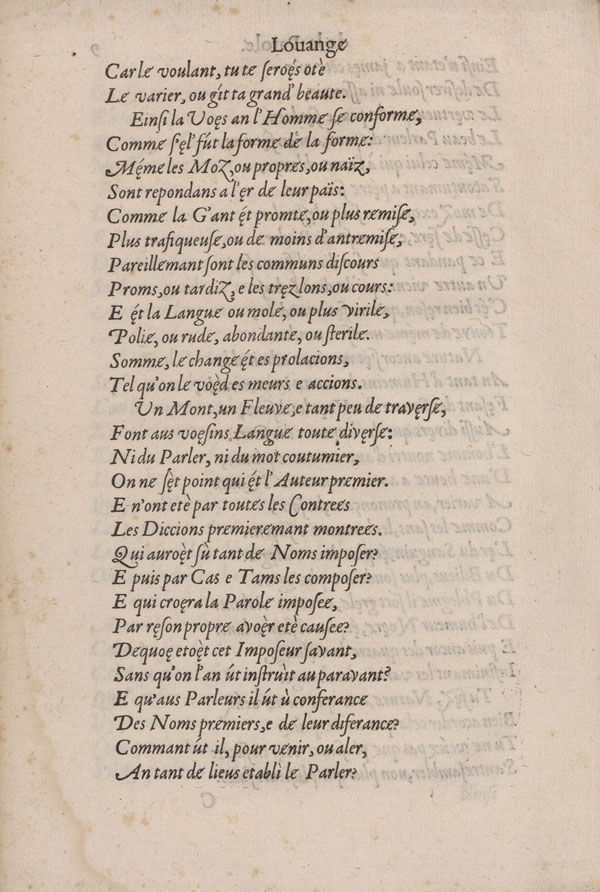 Louange
Car le voulant, tu te ſeroę́s otè
Le varier, ou gít ta grand' beaute.
Einſi la Voęs an l'Homme ſe conforme,
Comme ſ'ę́l fút la forme de la forme:
Mę́me les Moz, ou propres, ou naïz,
Sont repondans a l'ęr de leur païs:
Comme la G'ant ę́t promte, ou plus remiſe,
Plus trafiqueuſe, ou de moins d'antremiſe,
Pareillemant ſont les communs diſcours
Proms, ou tardiz, e les tręz lons, ou cours:
E ę́t la Langue ou mole, ou plus virile,
Polie, ou rude, abondante, ou ſterile.
Somme, le change ę́t es prolacions,
Tel qu'on le voę̀d es meurs e accions.
Un Mont, un Fleuve, e tant peu de travęrſe,
Font aus voęſins Langue toute divęrſe:
Ni du Parler, ni du mot coutumier,
On ne ſę̀t point qui ę́t l'Auteur premier.
E n'ont etè par toutes les Contrees
Les Diccions premieremant montrees.
Qui auroę̀t ſù tant de Noms impoſer?
E puis par Cas e Tams les compoſer?
E qui croęra la Parole impoſee,
Par ręſon propre avoę̀r etè cauſee?
Dequoę etoę̀t cet Impoſeur ſavant,
Sans qu'on l'an út inſtruìt au paravant?
E qu'aus Parleurs il út ù conferance
Des Noms premiers, e de leur diferance?
Commant út il, pour venir, ou aler,
An tant de lieus etablì le Parler?